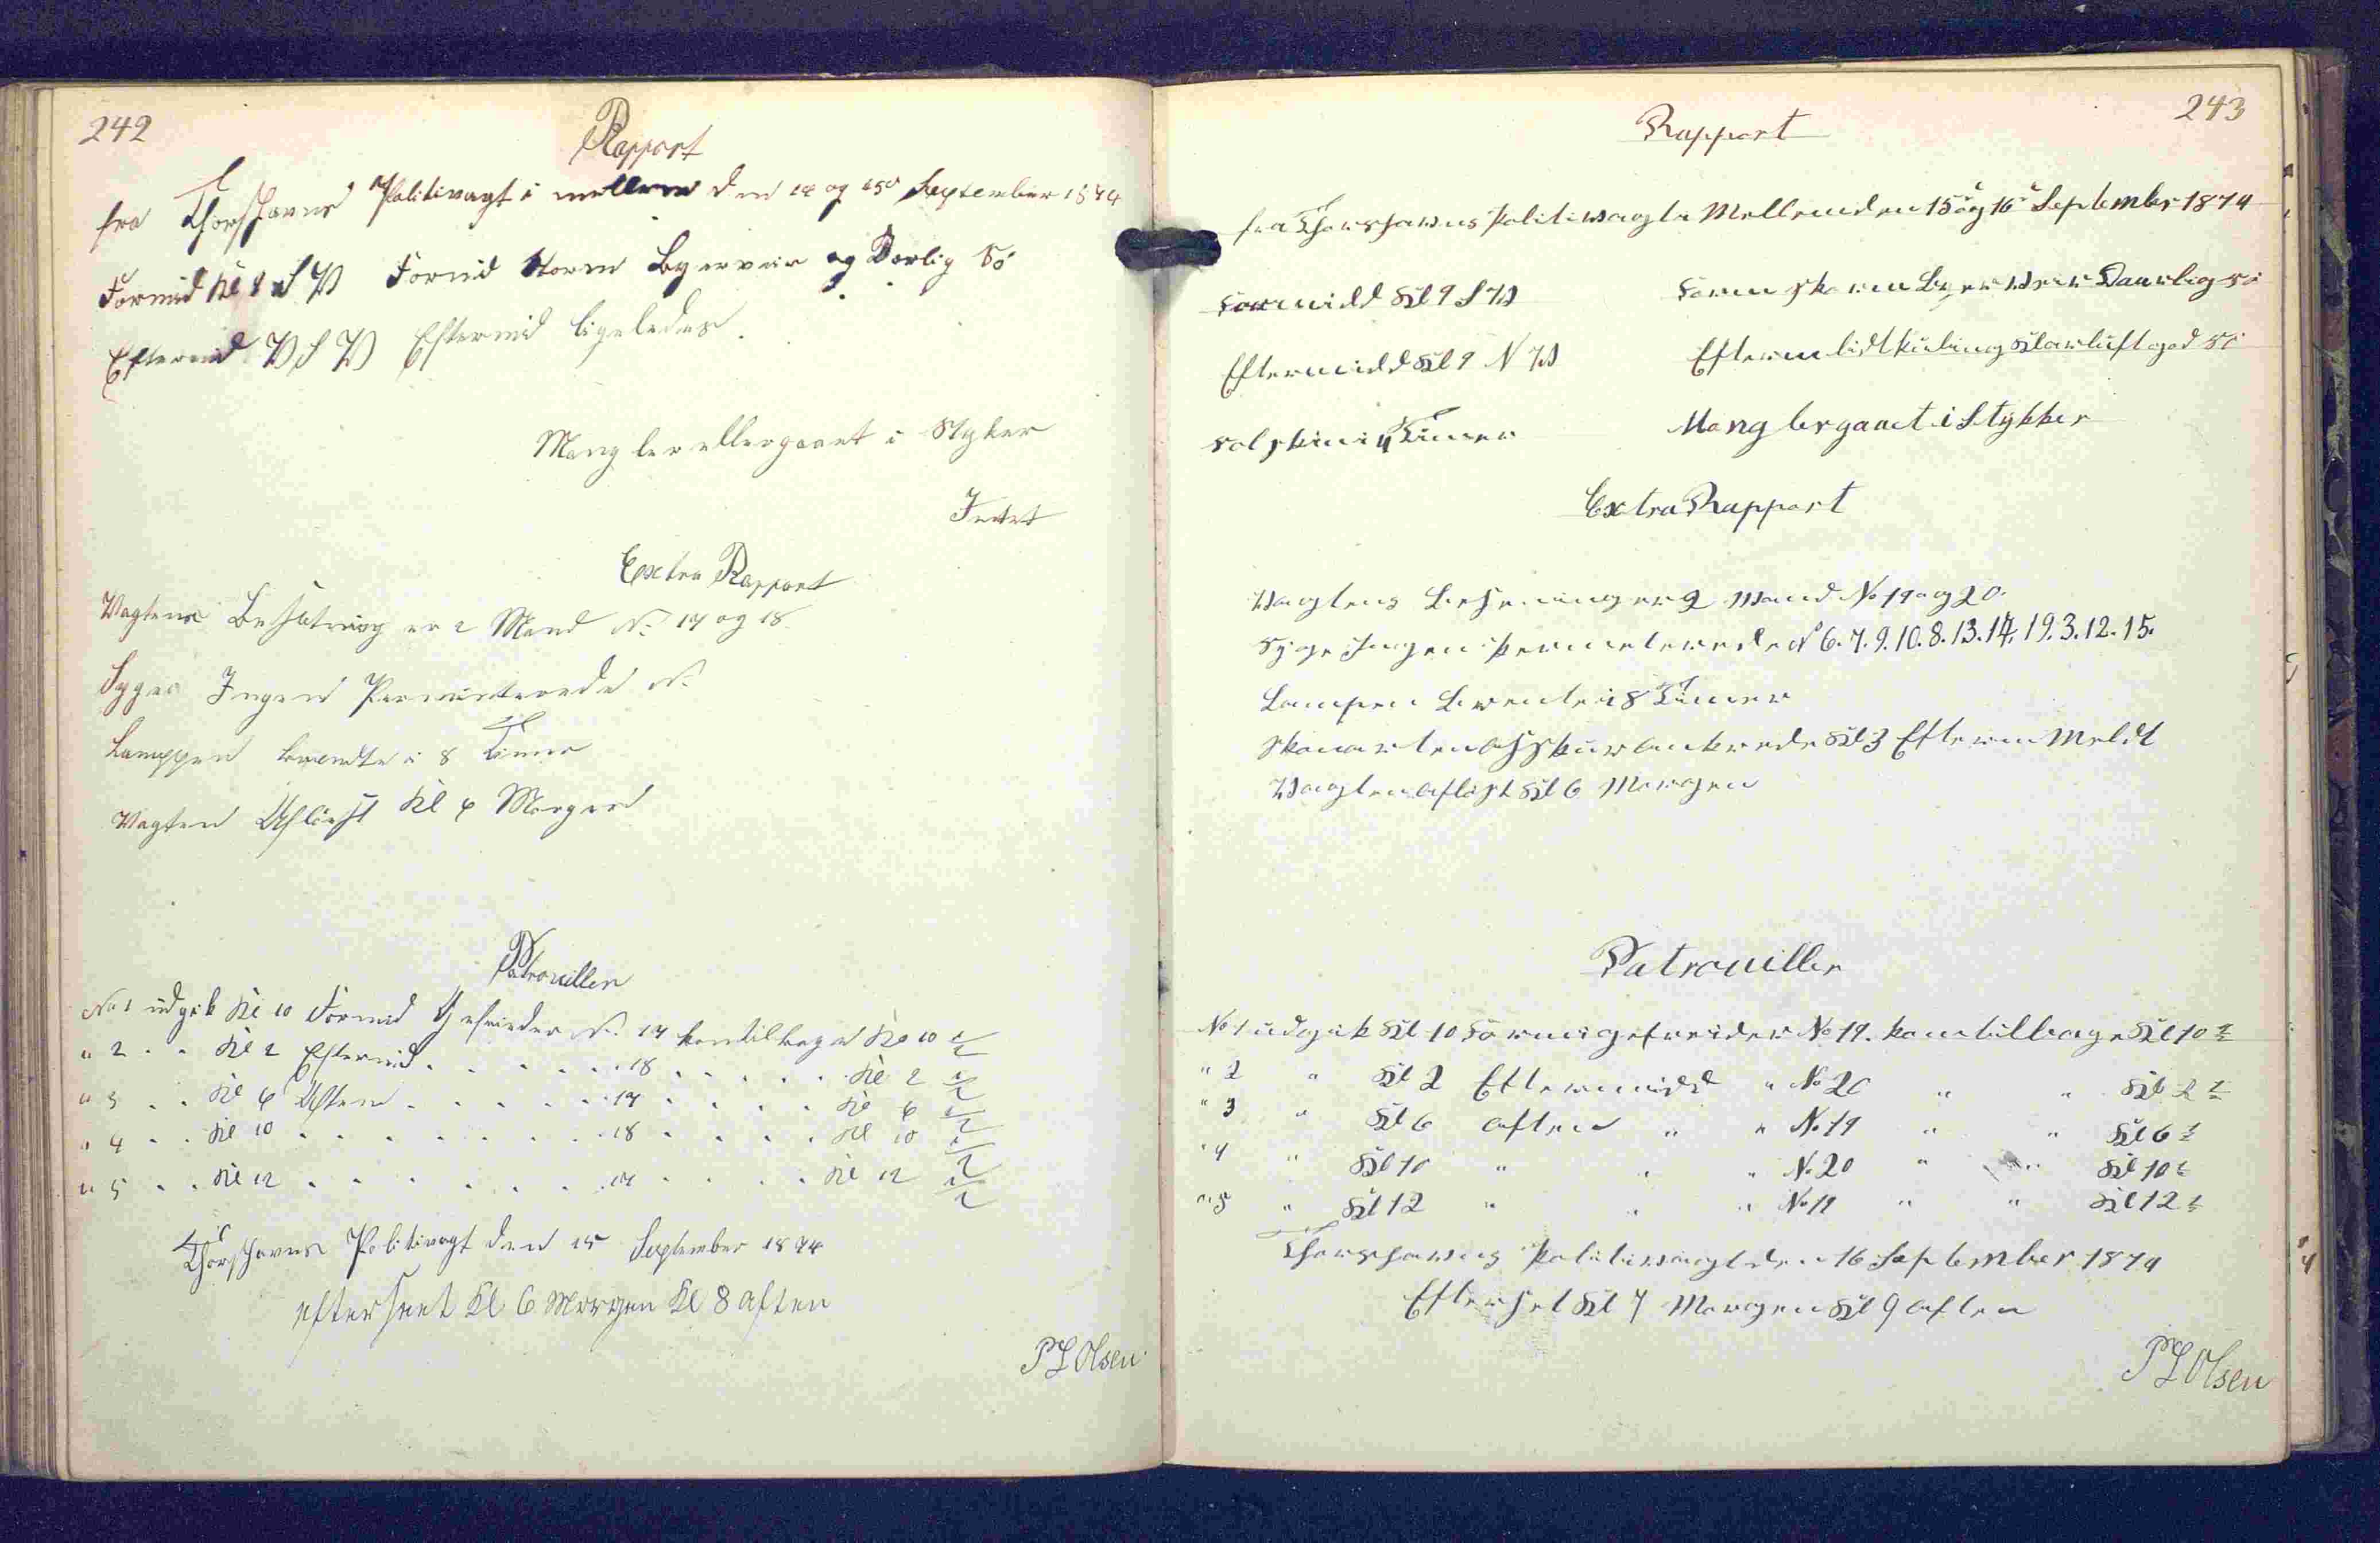 242
Rapport
fra Thorshavns Politivagt i mellem den 14 og 15de September 1874
Formid Kl 8 S V Formid Storm Bygerveir og Dorlig Sö
Eftermid V S V Eftermid ligeledes.
Mangler ellergaaet i Styker
Intet
Extra Rapport
Vagtens Besætning er 2 Mand No 17 og 18.
Syge Ingen Permiterede No
Lamppen brendte i 8 Timer
Vagten Aflöist Kl 6 Morgen
Patrouillen
No 1 udgik Kl 10 Formid Gefreider No. 17 komtilbage Kl 10 1/2
" 2 . . Kl 2 Eftermid . . . . . . 18 . . . . . Kl 2 1/2
" 3 . . Kl 6 Aften . . . . . . 17 . . . . . Kl 6 1/2
" 4 . . Kl 10 . . . . . . . . 18 . . . . . Kl 10 1/2
" 5 . . Kl 12 . . . . . . . 17 . . . . Kl 12 1/2
Thorshavns Politivagt den 15 September 1874
efterseet Kl 6 Morgen Kl 8 aften
P L Olsen
243
Rapport
fra Thorshavns Politivagt i Mellem den 15 og 16 September 1874
Formidd Kl 9 S V Form storm Bygerveir Daarlig sö
Eftermidd Kl 9 N V Efterm lidt kuling Klarluft god sö
solskin i 4 Timer Manglergaaet i Stykker
Extra Rapport
Vagtens Besetning er 2 Mand No 19 og 20.
Syge Ingen permeterede No 6. 7. 9. 10. 8. 13. 14. 19. 3. 12. 15.
Lampen Brente i 8 Timer
Skonarten ankrede Kl 3 Efterm Meldt
Vagten aflöst Kl 6 Morgen
Patrouiller
No 1 udgik Kl 10 Form gefreider No 19. kom tilbage Kl 10 1/2
" 2 " Kl 2 Eftermidd " No 20 " " Kl 2 1/2
" 3 " Kl 6 aften " " No 19 " " Kl 6 1/2
" 4 " Kl 10 " " " No 20 " " Kl 10 1/2
" 5 " Kl 12 " " " No 19 " " Kl 12 1/2
Thorshavns Politivagt den 16 September 1874
Efterset Kl 7 Morgen Kl 9 aften
P L Olsen